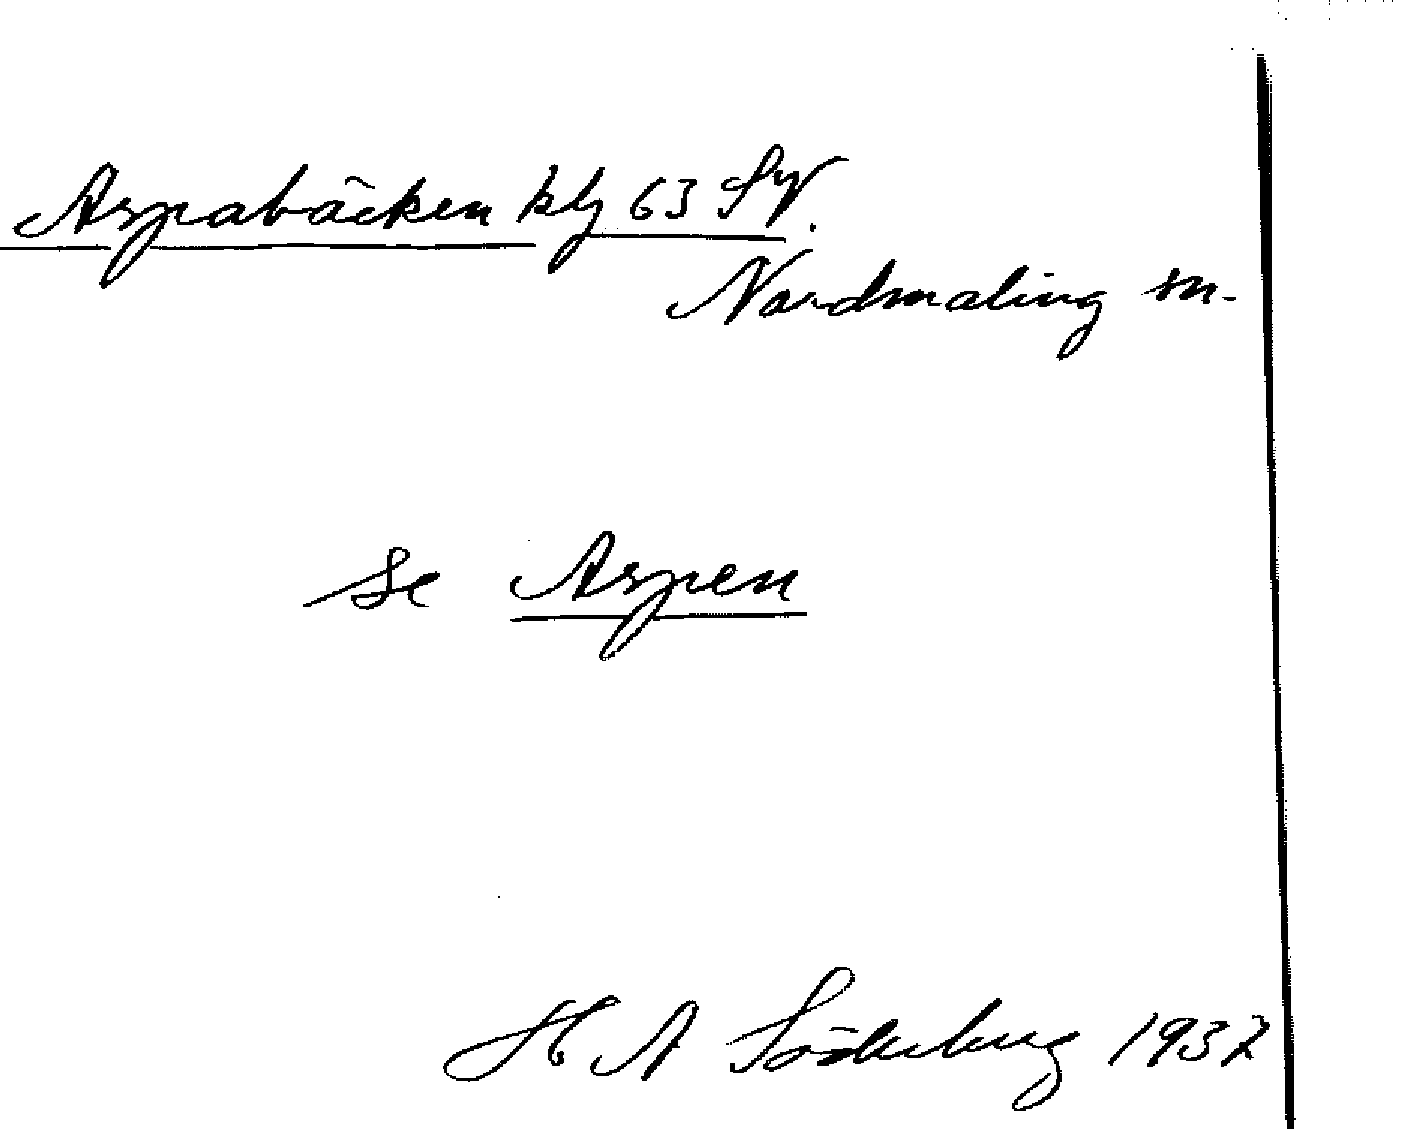 Aspabäcken kbl 63 SV.
Nordmaling sn.
se Aspen
H A Söderberg 1937